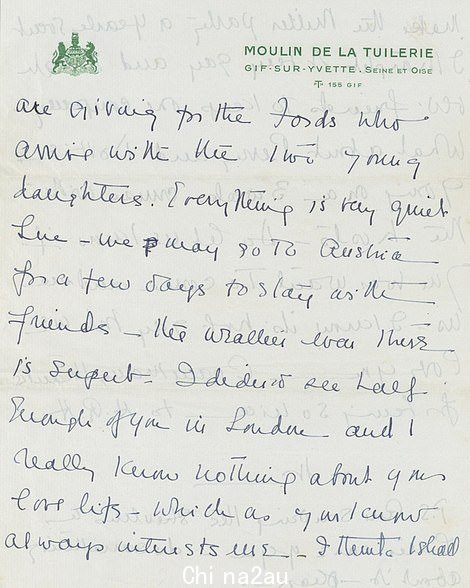 MOULIN DE LA TUILERIE
GIF-SUR-YVETTE. SEINE ET OISE
155 GIF
are giving for the Fords who
arrive with the two young
daughters. Everything is very quiet
here - we may go to Austria
for a few days to stay with
friends - the weather over there
is superb - I didn't see half
enough of you in London and I
really know nothing about your
love life - which as you know
always interests me - I think I shall
Chi na2au